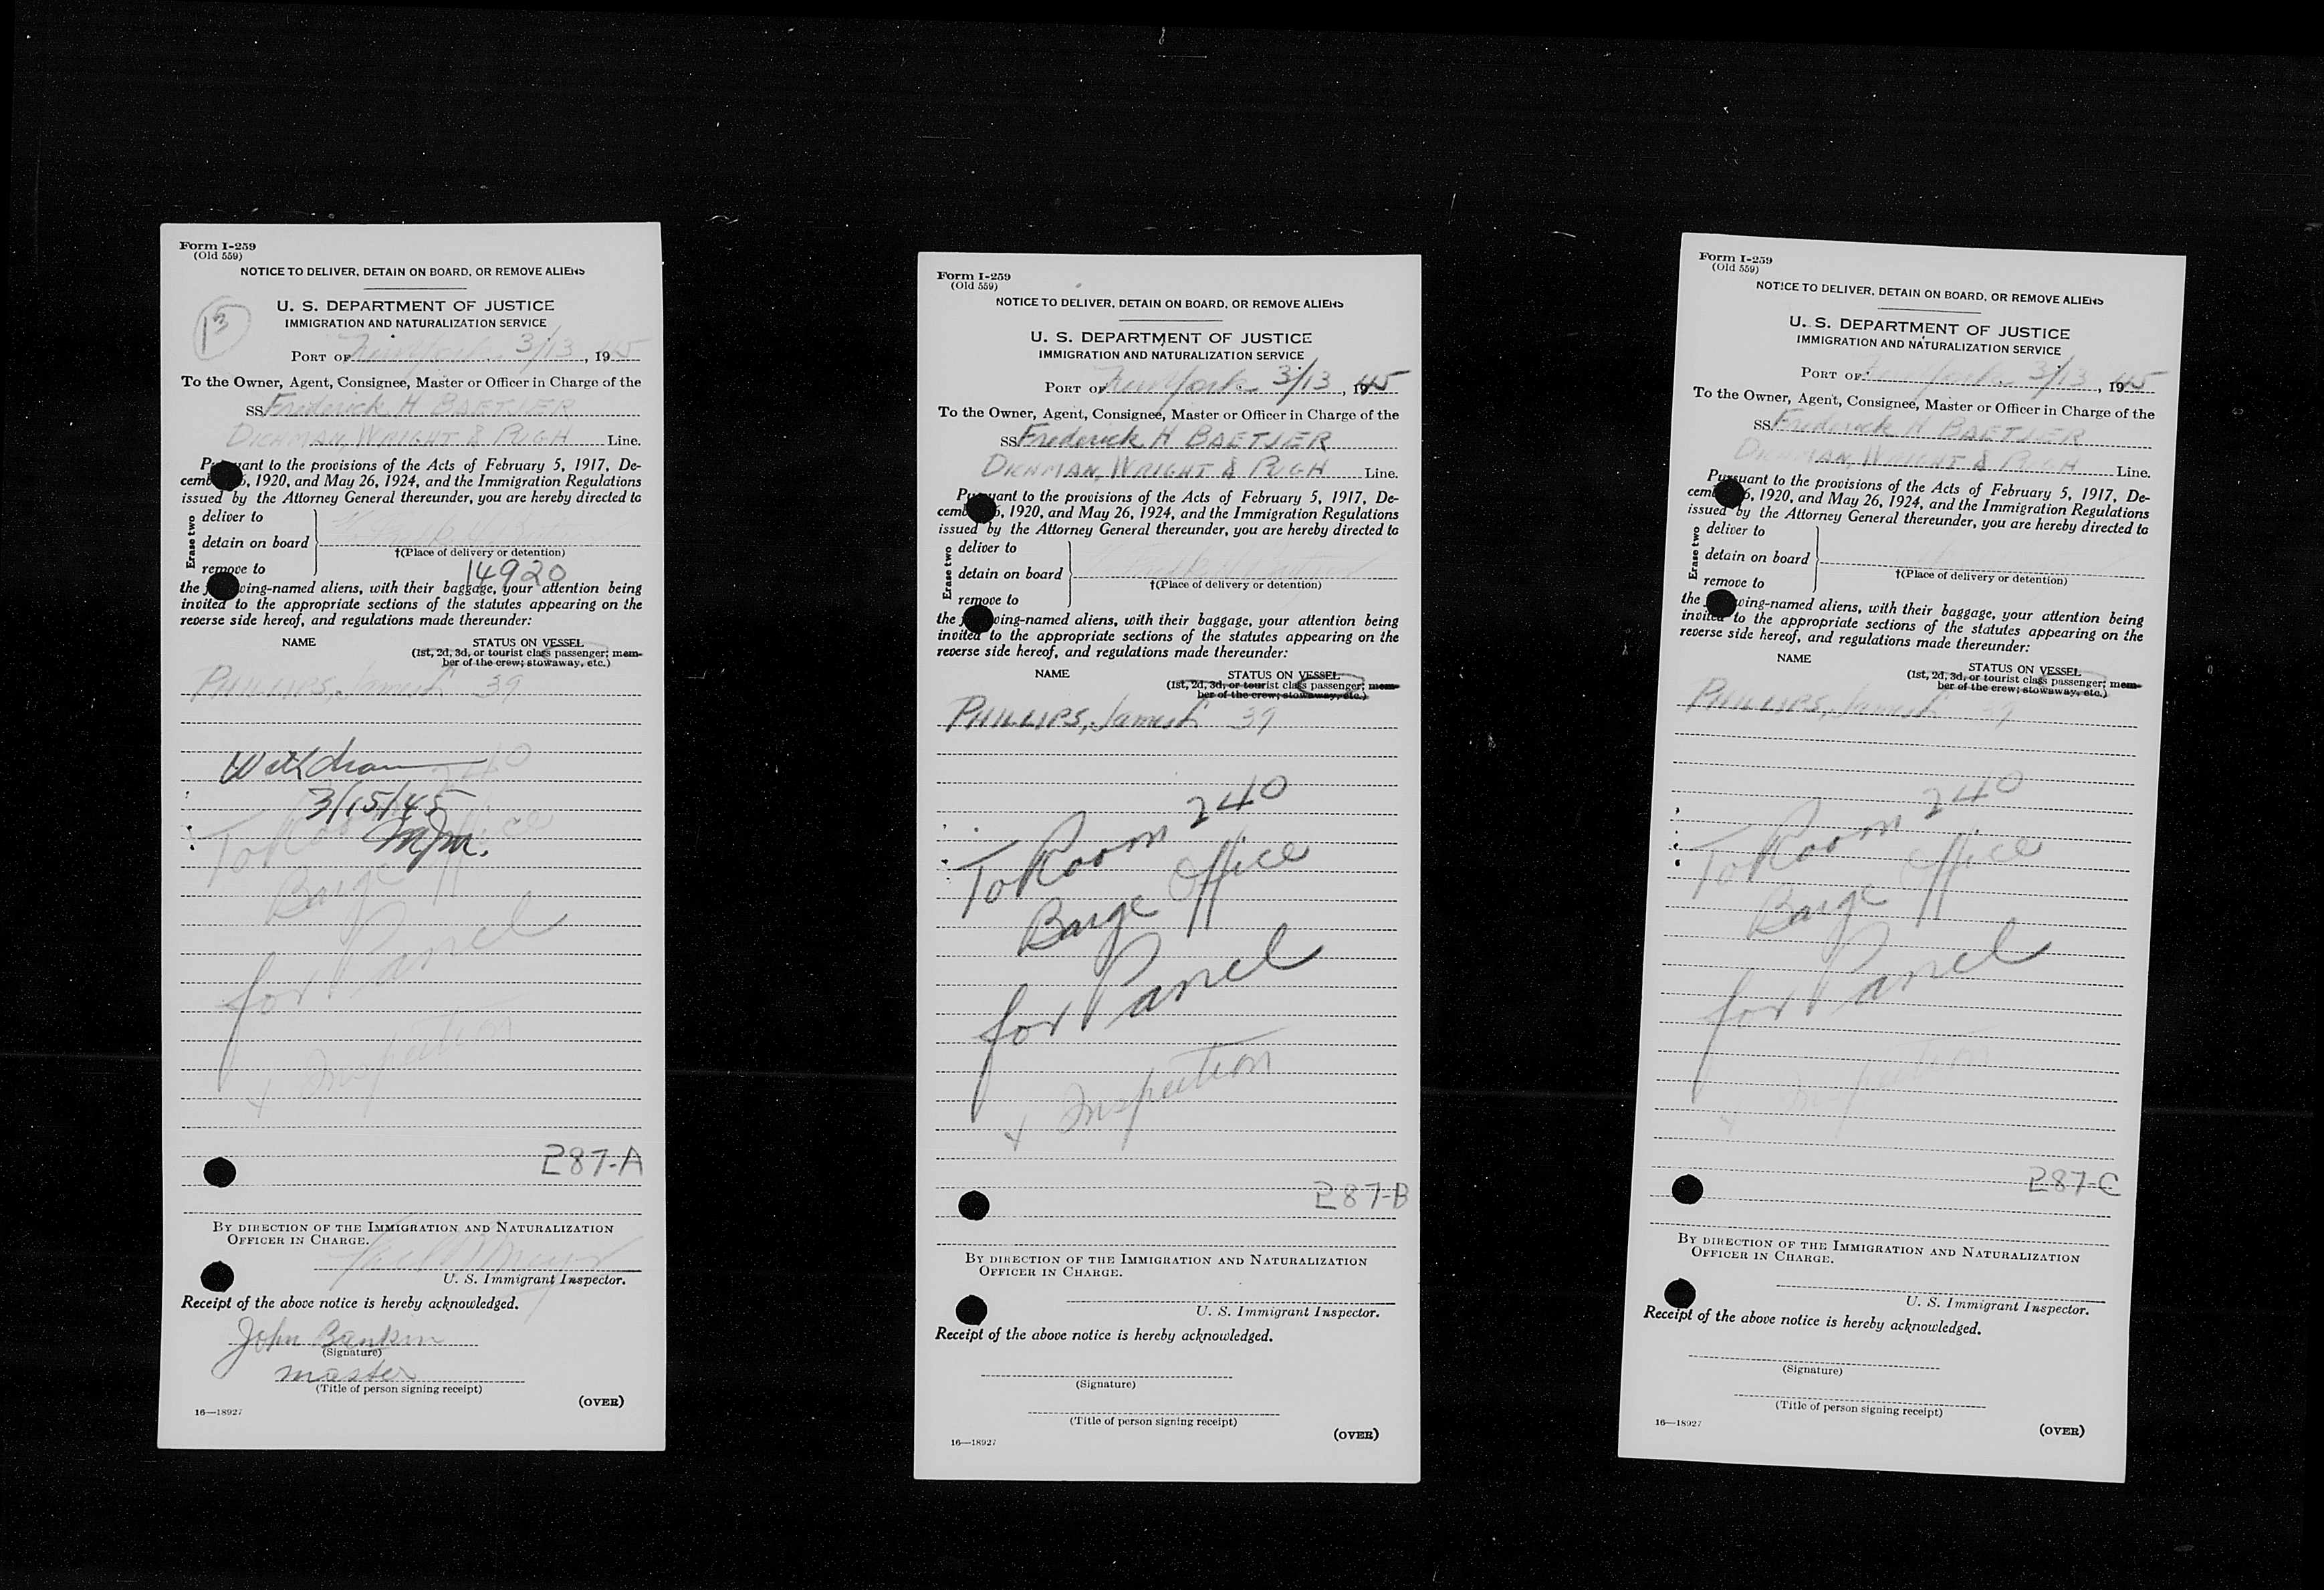 Form I-259
(Old 559)
NOTICE TO DELIVER, DETAIN ON BOARD, OR REMOVE ALIENS
13
U. S. DEPARTMENT OF JUSTICE
IMMIGRATION AND NATURALIZATION SERVICE
PORT OF New York 3/13, 1945
To the Owner, Agent, Consignee, Master or Officer in Charge of the
SS Frederick H BAETJER
DICHMAN, WRIGHT & PUGH Line.
Pursuant to the provisions of the Acts of February 5, 1917, De-
cember 26, 1920, and May 26, 1924, and the Immigration Regulations
issued by the Attorney General thereunder, you are hereby directed to
Erase two
deliver to
detain on board
†(Place of delivery or detention)
remove to
14920
the following-named aliens, with their baggage, your attention being
invited to the appropriate sections of the statutes appearing on the
reverse side hereof, and regulations made thereunder:
NAME STATUS ON VESSEL
(1st, 2d, 3d, or tourist class passenger; mem-
ber of the crew; stowaway, etc.)
PHILLIPS, James 39
Withdrawn
3/15/45
MJM.
240
To Room
Barge Office
for Panel
+ Inspection
287-A
BY DIRECTION OF THE IMMIGRATION AND NATURALIZATION
OFFICER IN CHARGE.
U. S. Immigrant Inspector.
Receipt of the above notice is hereby acknowledged.
John Bankin
(Signature)
master
(Title of person signing receipt)
(OVER)
16—18927
Form I-259
(Old 559)
NOTICE TO DELIVER, DETAIN ON BOARD, OR REMOVE ALIENS
U. S. DEPARTMENT OF JUSTICE
IMMIGRATION AND NATURALIZATION SERVICE
PORT OF New York 3/13, 1945
To the Owner, Agent, Consignee, Master or Officer in Charge of the
SS Frederick H BAETJER
DICHMAN, WRIGHT & PUGH Line.
Pursuant to the provisions of the Acts of February 5, 1917, De-
cember 26, 1920, and May 26, 1924, and the Immigration Regulations
issued by the Attorney General thereunder, you are hereby directed to
Erase two
deliver to
detain on board
†(Place of delivery or detention)
remove to
the following-named aliens, with their baggage, your attention being
invited to the appropriate sections of the statutes appearing on the
reverse side hereof, and regulations made thereunder:
NAME STATUS ON VESSEL
(1st, 2d, 3d, or tourist class passenger; mem-
ber of the crew; stowaway, etc.)
PHILLIPS, James 39
To Room 240
Barge Office
for Panel
+ Inspection
287-B
BY DIRECTION OF THE IMMIGRATION AND NATURALIZATION
OFFICER IN CHARGE.
U. S. Immigrant Inspector.
Receipt of the above notice is hereby acknowledged.
(Signature)
(Title of person signing receipt)
(OVER)
16—18927
Form I-259
(Old 559)
NOTICE TO DELIVER, DETAIN ON BOARD, OR REMOVE ALIENS
U. S. DEPARTMENT OF JUSTICE
IMMIGRATION AND NATURALIZATION SERVICE
PORT OF New York 3/13, 1945
To the Owner, Agent, Consignee, Master or Officer in Charge of the
SS Frederick H BAETJER
DICHMAN, WRIGHT & PUGH Line.
Pursuant to the provisions of the Acts of February 5, 1917, De-
cember 26, 1920, and May 26, 1924, and the Immigration Regulations
issued by the Attorney General thereunder, you are hereby directed to
Erase two
deliver to
detain on board
†(Place of delivery or detention)
remove to
the following-named aliens, with their baggage, your attention being
invited to the appropriate sections of the statutes appearing on the
reverse side hereof, and regulations made thereunder:
NAME STATUS ON VESSEL
(1st, 2d, 3d, or tourist class passenger; mem-
ber of the crew; stowaway, etc.)
PHILLIPS, James 39
To Room 240
Barge Office
for Panel
+ Inspection
287-C
BY DIRECTION OF THE IMMIGRATION AND NATURALIZATION
OFFICER IN CHARGE.
U. S. Immigrant Inspector.
Receipt of the above notice is hereby acknowledged.
(Signature)
(Title of person signing receipt)
(OVER)
16—18927